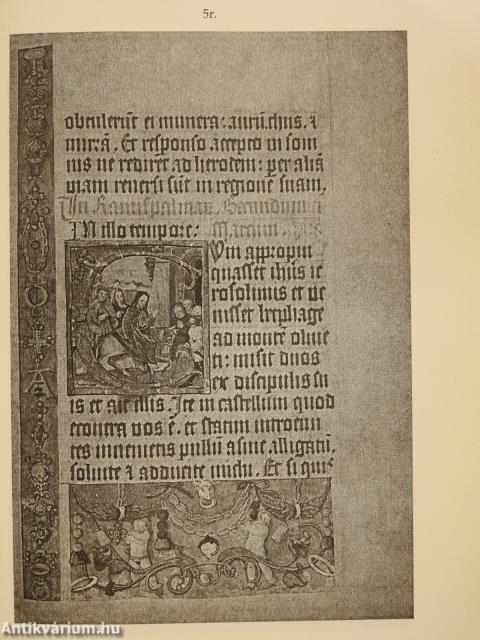 5r.
obtulerūt ei munera: aurū. thus. ⁊
mirrā. Et responso accepto in som
nis ne rediret ad herodem: per aliā
viam reuersi sūt in regionē suam.
In Ramispalmar. Secundum
IN illo tempore: Marcum
Cum appropin
quasset ihūs ie
rosolimis et ve
nisset bethphage
ad montē oliue
ti: misit duos
ex discipulis su
is et ait illis. Ite in castellum quod
econtra vos ē. et statim introeun
tes inuenietis pullū asine alligatū.
soluite ⁊ adducite michi. Et si quis
Antikvárium.hu